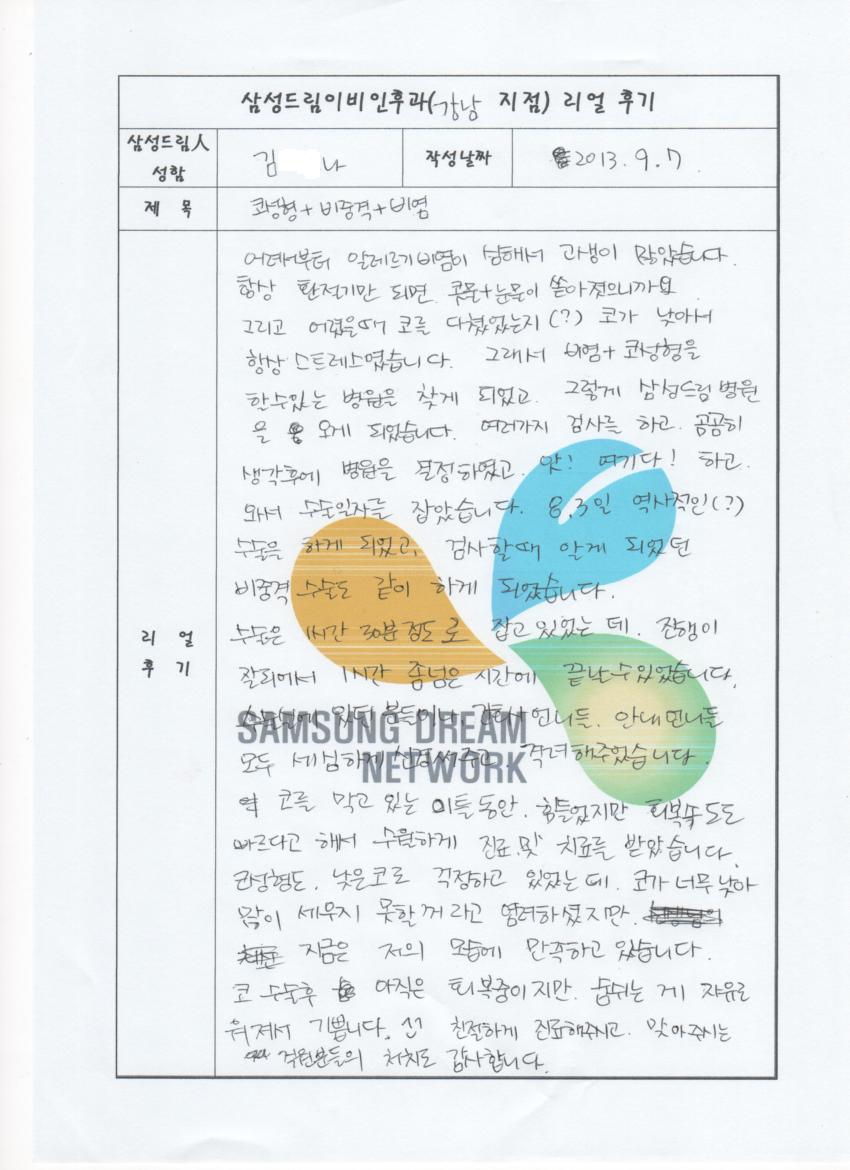 삼성드림이비인후과(강남 지점) 리얼 후기
삼성드림人 성함
김 나
작성날짜
2013. 9. 7
제 목
코성형+비중격+비염
리 얼 후 기
어려서부터 알레르기비염이 심해서 고생이 많았습니다.
항상 환절기만 되면 콧물+눈물이 쏟아졌으니까요
그리고 어렸을때 코를 다쳤었는지(?) 코가 낮아서
항상 스트레스였습니다. 그래서 비염+코성형을
할수있는 병원을 찾게 되었고. 그렇게 삼성드림병원
을 오게 되었습니다. 여러가지 검사를 하고. 곰곰히
생각후에 병원을 결정하였고. 앗! 여기다! 하고.
와서 수술일자를 잡았습니다. 8.3일 역사적인(?)
수술을 하게 되었고, 검사할때 알게 되었던
비중격 수술도 같이 하게 되었습니다.
수술은 1시간 30분정도로 잡고있었는 데. 진행이
잘되에서 1시간 좀넘은 시간에 끝난수있었습니다.
있던 분들이나 간호사언니들. 안내언니들
모두 세심하게 신경써주고 격려해주었습니다.
코를 막고 있는 이틀동안. 힘들었지만 회복속도도
빠르다고 해서 수월하게 진료 및 치료를 받았습니다.
코성형도. 낮은코로 걱정하고 있었는데. 코가 너무 낮아
많이 세우지 못할꺼라고 염려하셨지만.
지금은 저의 모습에 만족하고 있습니다.
코 수술후 아직은 회복중이지만. 숨쉬는 게 자유로
워져서 기쁩니다. 친절하게 진료해주시고. 맞아주시는
직원분들의 처치도 감사합니다.
SAMSUNG DREAM
NETWORK